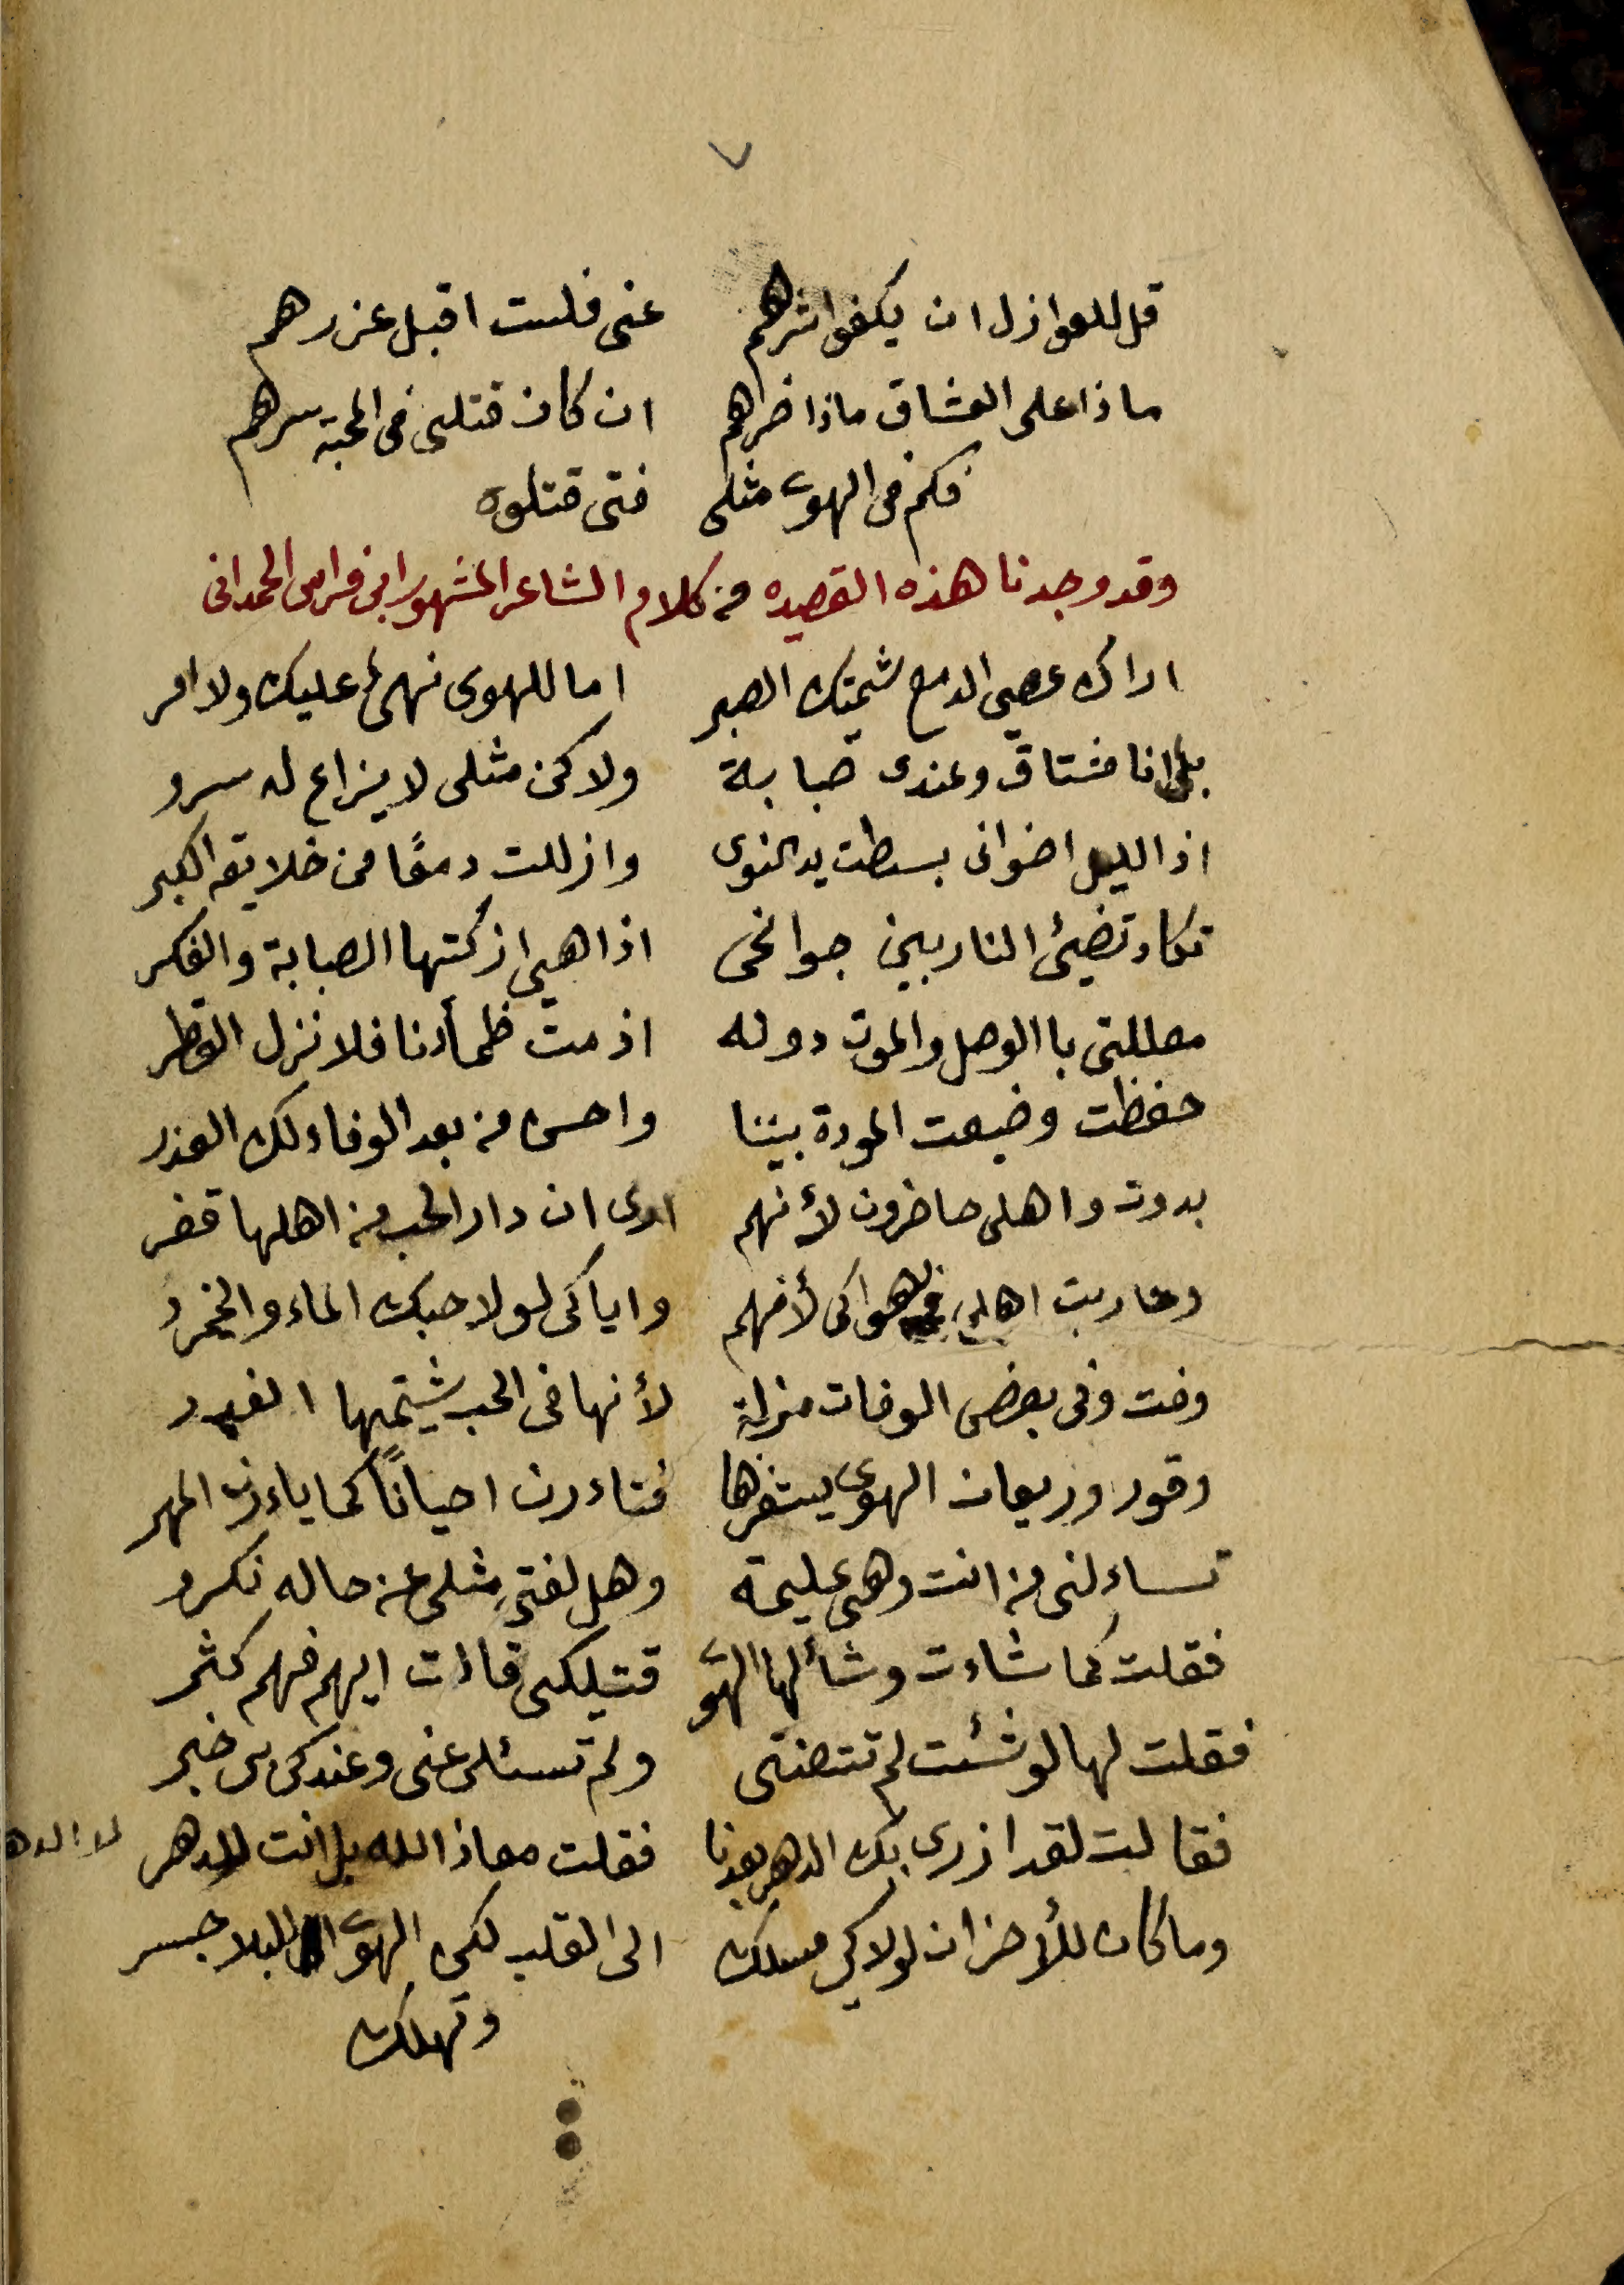 ٧
قل للعوازل ان يكفوا شرهم عنى فلست اقبل عزرهم
ماذا على العشاق ماذا ضرهم ان كان قتلى فى المحبة سرهم
فكم فى الهوى مثلى فتى قتلوه
وقد وجدنا هذه القصيده من كلام الشاعر المشهور ابى فراس الحمدانى
اراك عصى الدمع شيمتك الصبر اما للهوى نهىٌ عليك ولا امر
بلى انا مشتاق وعندى صبابة ولاكن مثلى لا يزاع له سرو
اذا الليل اضوانى بسطت يد النوى وازللت دمعًا من خلايقه الكبر
تكاد تضيئ النار بين جوانحى اذا هى ازكتها الصبابة والفكر
معللتى باالوصل والموت دونه اذ مت ظمأنا فلا نزل القطر
حفظت وضيعت المودة بيننا واحسن من بعد الوفاء لك العذر
بدوت واهلى حاضرون لأنهم ارى ان دار الحب من اهلها قفر
وحاربت اهلى فى هواكى لأنهم واياكى لولا حبك الماء والخمرو
وفت وفى بعض الوفات منزلة لأنها فى الحب شيتمها الغدر
وقور وريعان الهوى يستفزها فتاءرن احياناً كما ياءرن المهر
تساءلنى من انت وهى عليمة وهل لفتىٍ مثلى عن حاله نكرو
فقلت كما شاءت وشألها الهوى قتيلكى قالت ايهم فهم كثر
فقلت لها لو شئت لم تتعنتى ولم تسئلى عنى وعندكى بى خبر
فقالت لقد ازرى بك الدهر بعدنا فقلت معاذ الله بل انت للدهر لا الدهر
وما كان للأحزان لولاكى مسلك الى القلب لكن الهوى للبلا جسر
وتهلك